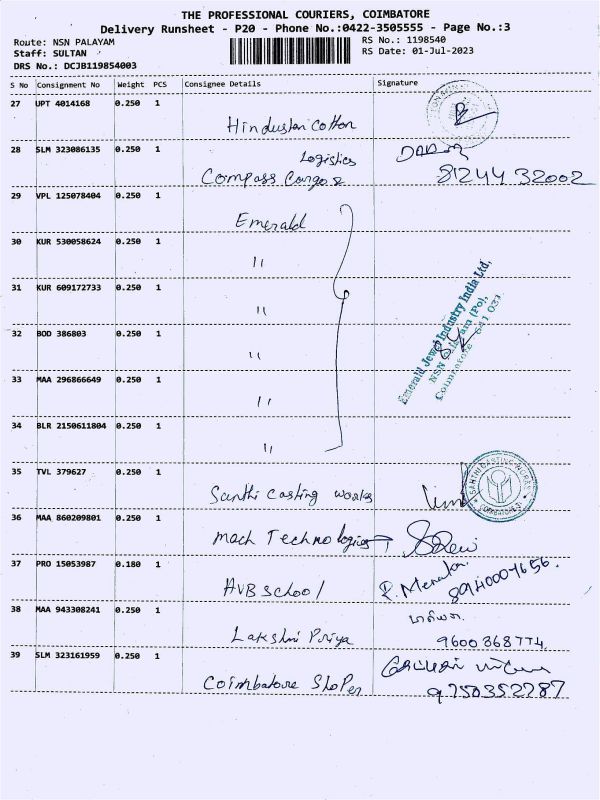 THE PROFESSIONAL COURIERS, COIMBATORE
Delivery Runsheet - P20 - Phone No.:0422-3505555 - Page No.:3
Route: NSN PALAYAM
RS No.: 1198540
Staff: SULTAN
RS Date: 01-Jul-2023
DRS No.: DCJB119854003
S No Consignment No Weight PCS Consignee Details Signature
27 UPT 4014168 0.250 1
Hindustan Cotton
28 SLM 323086135 0.250 1
Logistics
Compass Cargo &
81244 32002
29 VPL 125078404 0.250 1
Emerald
30 KUR 530058624 0.250 1
"
31 KUR 609172733 0.250 1
"
Emerald Jewel Industry India Ltd,
NSN Palayam (Po),
Coimbatore - 641 031
32 BOD 386803 0.250 1
"
33 MAA 296866649 0.250 1
"
34 BLR 2150611804 0.250 1
"
35 TVL 379627 0.250 1
Santhi Casting works
SANTHI CASTING WORKS
36 MAA 860209801 0.250 1
Mach Technologies
37 PRO 15053987 0.180 1
AVB School
38 MAA 943308241 0.250 1
Lakshmi Priya
9600 868774
39 SLM 323161959 0.250 1
Coimbatore Shoper
9750352787